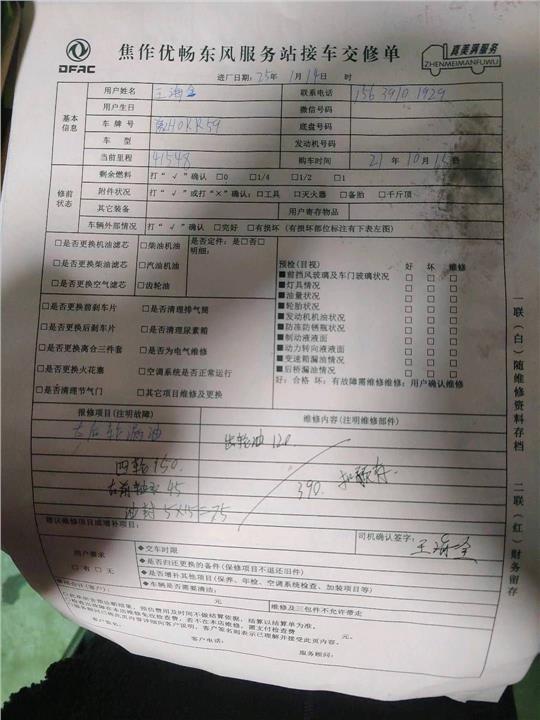 DFAC
焦作优畅东风服务站接车交修单
真美满服务
ZHENMEIMANFUWU
进厂日期: 25年 1月 14日 时
基本信息
用户姓名 王海全 联系电话 156 3910 1929
用户生日 微信号码
车牌号 豫H0KR59 底盘号
车型 发动机号码
当前里程 41548 购车时间 21年10月
修前状态
剩余燃料 打“√”确认 □0 □1/4 □1/2 □1
附件状况 打“√”或打“×”确认: □工具 □灭火器 □备胎 □千斤顶
其它装备 用户寄存物品
车辆外部情况 打“√”确认 □完好 □有损坏 (有损坏部位标注有下表左图)
□是否更换机油滤芯 □柴油机油 是否定件: 是□否□
明细:
□是否更换柴油滤芯 □汽油机油
□是否更换空气滤芯 □齿轮油
预检(目视) 好 坏 维修
■前挡风玻璃及车门玻璃状况 □ □ □
■灯具情况 □ □ □
■油量状况 □ □ □
■轮胎状况 □ □ □
■发动机机油状况 □ □ □
■防冻防锈瓶状况 □ □ □
■制动液液面 □ □ □
■动力转向液液面 □ □ □
■变速箱漏油情况 □ □ □
■后桥漏油情况 □ □ □
好: 合格 坏: 有故障需维修维修: 用户确认维修
□是否更换前刹车片 □是否清理排气筒
□是否更换后刹车片 □是否清理尿素箱
□是否更换离合三件套 □是否为电气维修
□是否更换火花塞 □空调系统是否正常运行
□是否清理节气门 □其它项目维修及更换
报修项目(注明故障) 维修内容(注明维修部件)
右后轮漏油 齿轮油 120
四轮 150
右前轴承 45 390
油封 5×15=75
建议维修项目或增补项目:
司机确认签字: 王海全
用户要求
□有 □无
◆交车时限
◆是否归还更换的备件(保修项目不退还旧件)
◆是否增补其他项目(保养、年检、空调系统检查、加装项目等)
◆车辆是否需要清洁:
元 维修及三包件不允许带走
元。
客户签名:
客户电话:
服务顾问:
一联(白)随维修资料存档 二联(红)财务留存